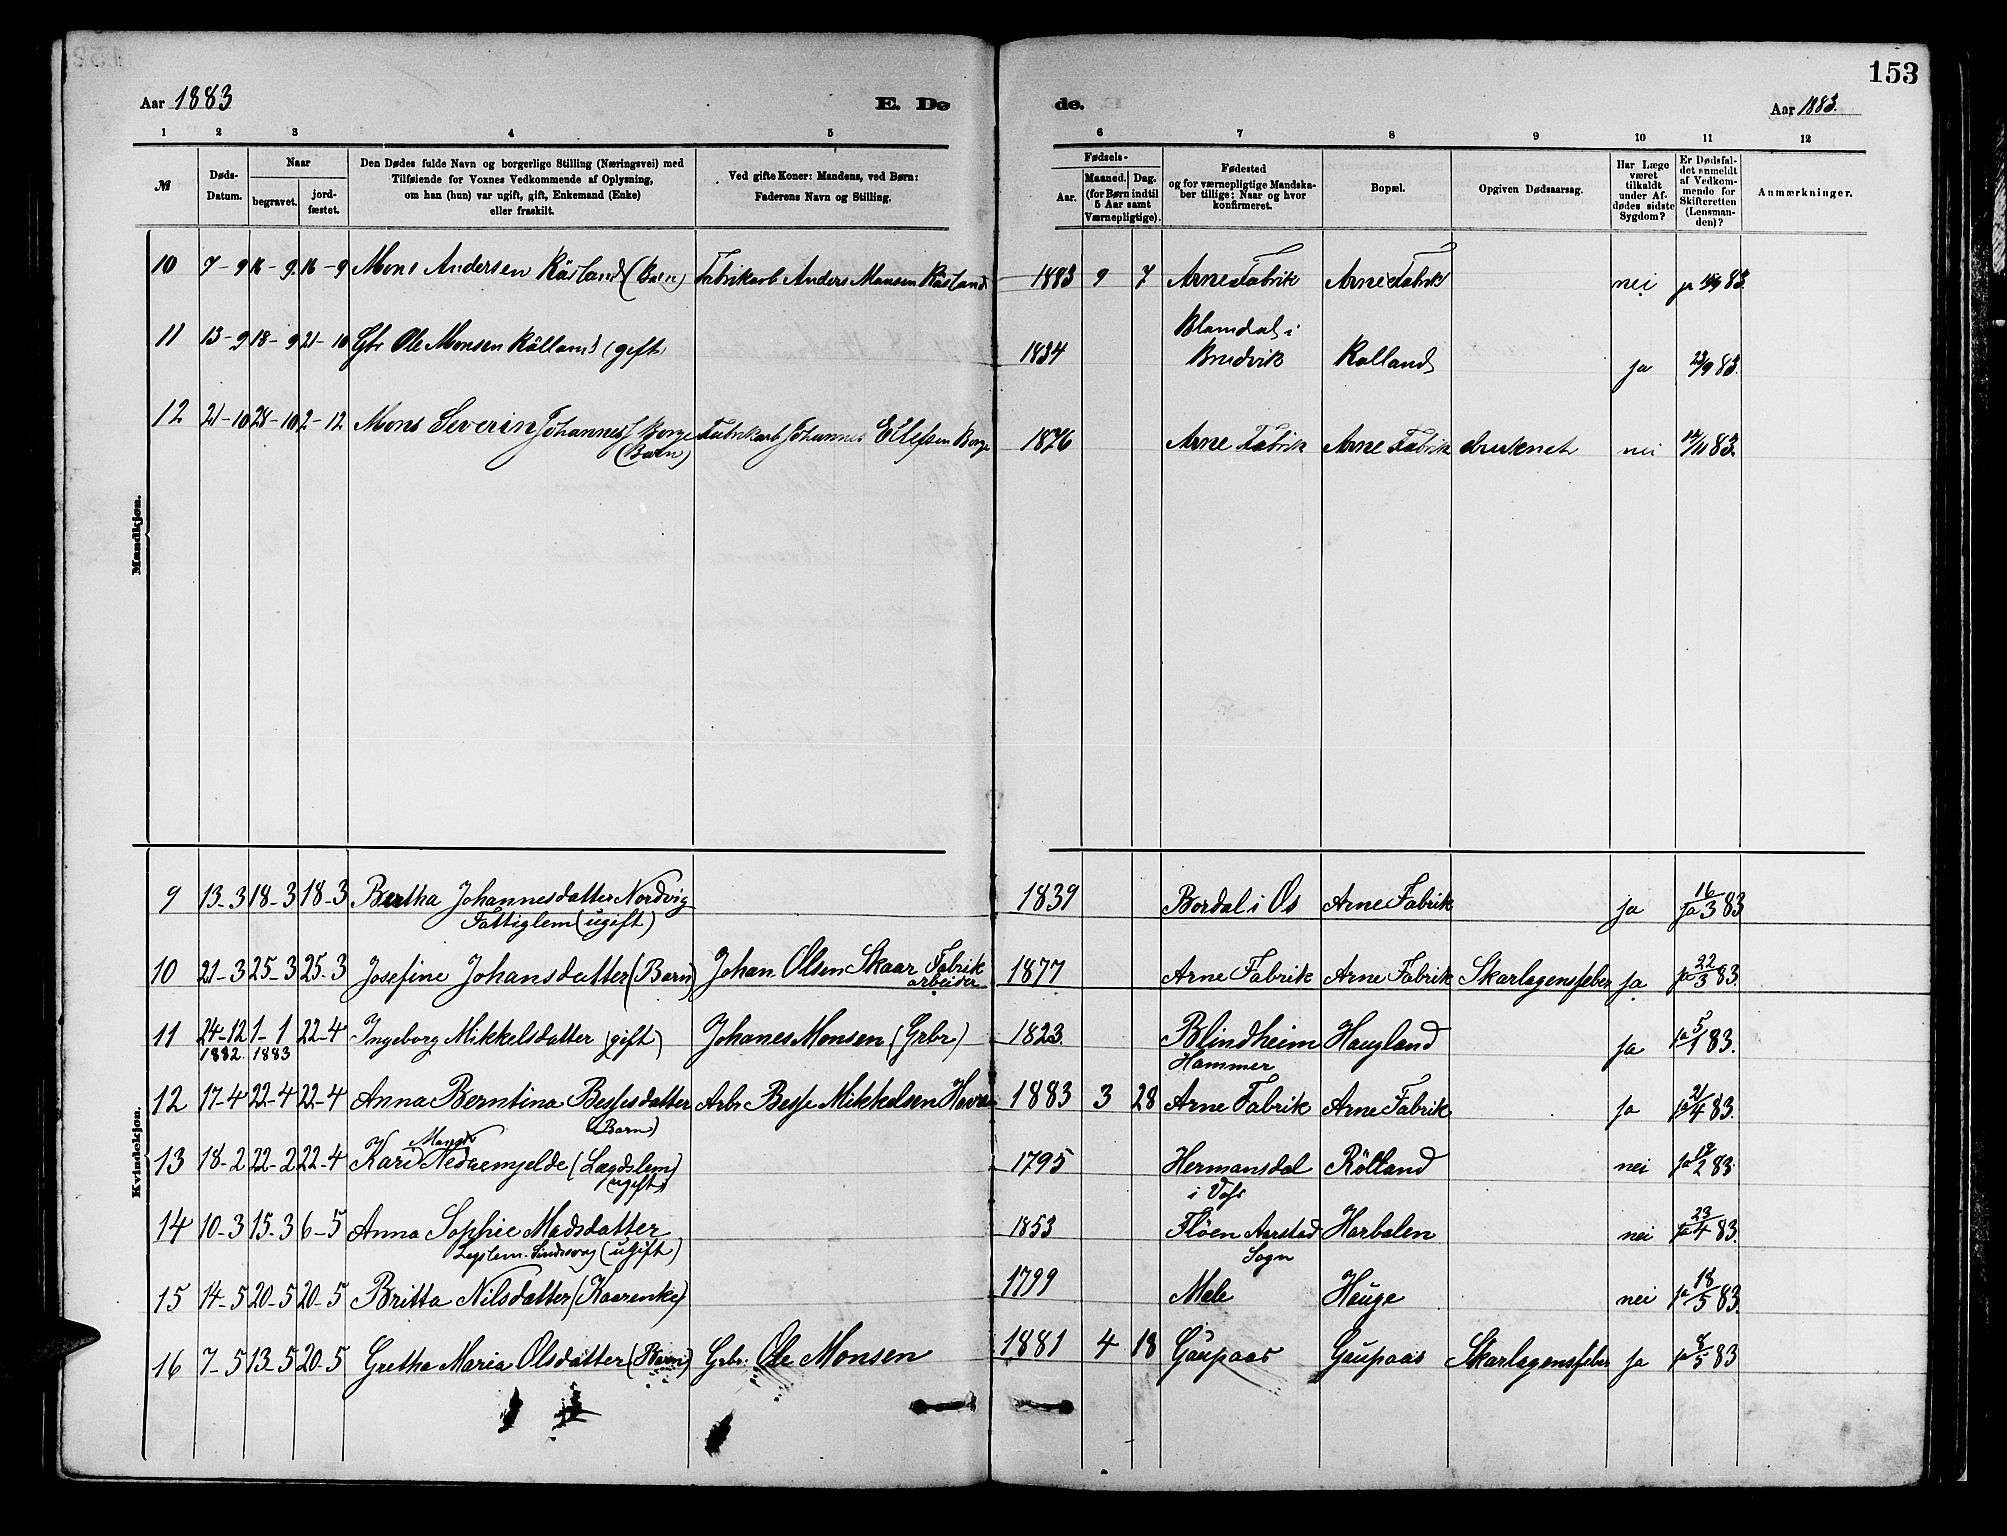 153
Aar 1883
E. Dø
de.
Aar 1883.
1 2 3 4 5 6 7 8 9 10 11 12
№
Døds-
Datum.
Naar
begravet.
jord-
fæstet.
Den Dødes fulde Navn og borgerlige Stilling (Næringsvei) med
Tilføiende for Voxnes Vedkommende af Oplysning,
om han (hun) var ugift, gift, Enkemand (Enke)
eller fraskilt.
Ved gifte Koner: Mandens, ved Børn:
Faderens Navn og Stilling.
Fødsels-
Aar.
Maaned. Dag.
(for Børn indtil
5 Aar samt
Værnepligtige).
Fødested
og for værnepligtige Mandska-
ber tillige: Naar og hvor
konfirmeret.
Bopæl.
Opgiven Dødsaarsag.
Har Læge
været
tilkaldt
under Af-
dødes sidste
Sygdom?
Er Dødsfal-
det anmeldt
af Vedkom-
mende for
Skifteretten
(Lensman-
den)?
Anmærkninger.
Mandkjøn.
10 7-9 16-9 16-9 Mons Andersen (Barn) Fabrikarb Anders Monsen 1883 9 7 Arne Fabrik Arne Fabrik nei ja 83
11 13-9 18-9 21-10 Gbr Ole Monsen Rölland (gift) 1834 Blamdal i
Bredvik Rolland ja 23/9 83.
12 21-10 28-10 2-12 Mons Severin Johannes Borge Fabrikarb Johannes Ellefsen Borge 1876 Arne Fabrik Arne Fabrik druknet nei 12/11 83.
(Barn)
Kvindekjøn.
9 13-3 18-3 18-3 Bertha Johannesdatter Nordvig 1839 Bordal i Os Arne Fabrik ja ja 16/3 83
Fattiglem (ugift)
10 21-3 25-3 25-3 Josefine Johansdatter (Barn) Johan Olsen Skaar Fabrik
arbeider 1877 Arne Fabrik Arne Fabrik Skarlagensfeber ja ja 22/3 83.
11 24-12 1-1 22-4 Ingeborg Mikkelsdatter (gift) Johanes Monsen (Grbr) 1823. Blindheim Haugland ja ja 5/1 83.
1882. 1883 Hammer
12 17-4 22-4 22-4 Anna Berntina Bessesdatter Arbr Besse Mikkelsen 1883 3 28 Arne Fabrik Arne Fabrik ja ja 21/4 83.
(Barn)
13 18-2 22-2 22-4 Kari Mangdr Nedremjelde (Lægdslem) 1795 Hermansdal Rölland nei ja 19/2 83.
ugift) i Voss
14 10-3 15-3 6-5 Anna Sophie Madsdatter 1853 Flöen Aarstad Harbalen nei ja 23/4 83.
(ugift) Sogn
15 14-5 20-5 20-5 Britta Nilsdatter (Kaarenke) 1799 Mele Hauge nei ja 18/5 83.
16 7-5 13-5 20-5 Gretha Maria Olsdatter (Barn) Grbr. Ole Monsen 1881 4 18 Gaupaas Gaupaas Skarlagensfeber ja ja 8/5 83